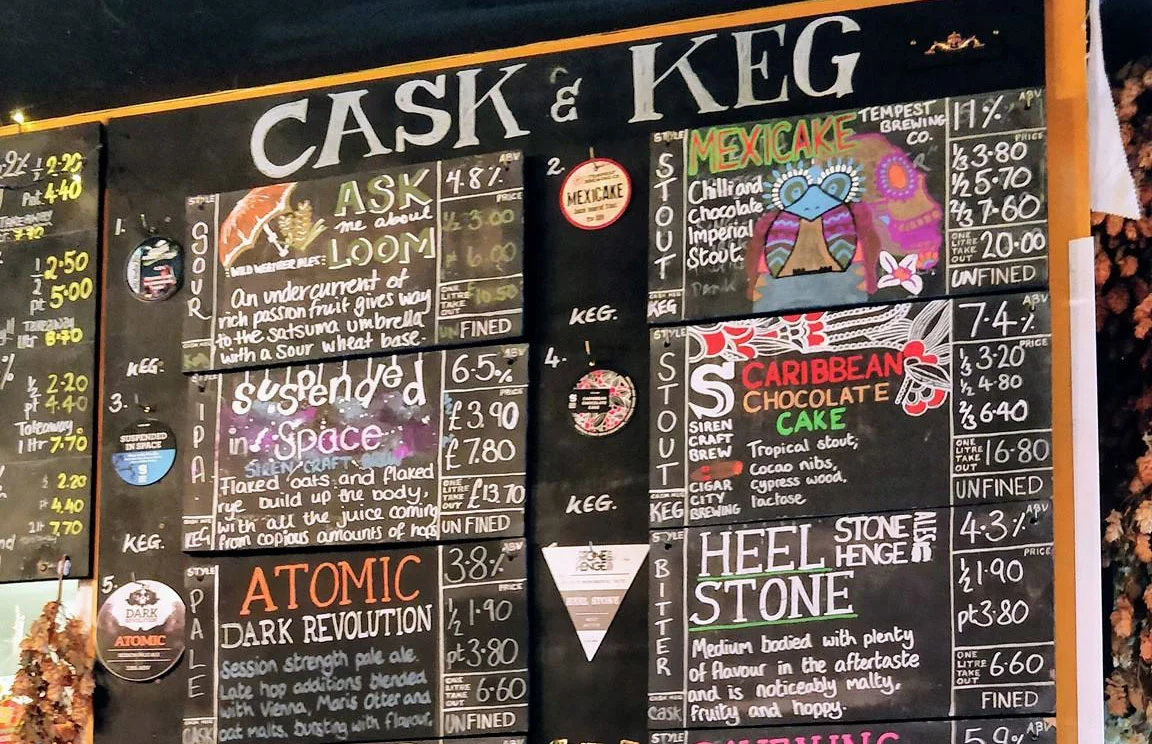 CASK & KEG
½ 2.20
Pnt 4.40
TAKEAWAY
½ 2.50
pt 5.00
Takeaway
1 ltr 8.70
½ 2.20
pt 4.40
Takeaway.
1 ltr 7.70
½ 2.20
pt 4.40
1 lt 7.70
1.
KEG.
STYLE
SOUR
WILD WEATHER ALES
ASK
me about
LOOM
An undercurrent of
rich passionfruit gives way
to the satsuma umbrella
with a sour wheat base.
ABV
4.8%
PRICE
½ 3.00
6.00
ONE LITRE TAKE OUT
10.50
UNFINED
2.
MEXICAKE
KEG.
STYLE
STOUT
CASK KEG
KEG
MEXICAKE
TEMPEST
BREWING
CO.
Chilli and
Chocolate
Imperial
Stout.
ABV
11%
PRICE
⅓ 3.80
½ 5.70
⅔ 7.60
ONE LITRE TAKE OUT
20.00
UNFINED
3.
SUSPENDED
IN SPACE
KEG.
STYLE
IPA
KEG
Suspended
in Space
SIREN CRAFT BREW
Flaked oats and flaked
rye build up the body,
with all the juice coming
from copious amounts of hops
ABV
6.5%
½ £3.90
£7.80
ONE LITRE TAKE OUT
£13.70
UNFINED
4.
CARIBBEAN
CHOCOLATE
CAKE
KEG.
STYLE
STOUT
CASK KEG
KEG
S
SIREN
CRAFT
BREW
CIGAR
CITY
BREWING
CARIBBEAN
CHOCOLATE
CAKE
Tropical stout,
Cocao nibs,
cypress wood,
lactose
ABV
7.4%
PRICE
⅓ 3.20
½ 4.80
⅔ 6.40
ONE LITRE TAKE OUT
16.80
UNFINED
5.
DARK
REVOLUTION
ATOMIC
STYLE
PALE
CASK KEG
CASK
ATOMIC
DARK REVOLUTION
Session strength pale ale.
Late hop additions blended
with Vienna, Maris Otter and
oat malts, bursting with flavour.
ABV
3.8%
PRICE
½ 1.90
pt 3.80
ONE LITRE TAKE OUT
6.60
UNFINED
STONE
HENGE
HEEL STONE
STYLE
BITTER
CASK KEG
Cask
HEEL
STONE
STONE
HENGE
ALES
Medium bodied with plenty
of flavour in the aftertaste
and is noticeably malty,
fruity and hoppy.
ABV
4.3%
PRICE
½ 1.90
pt 3.80
ONE LITRE TAKE OUT
6.60
FINED
STYLE
ABV
5.9%